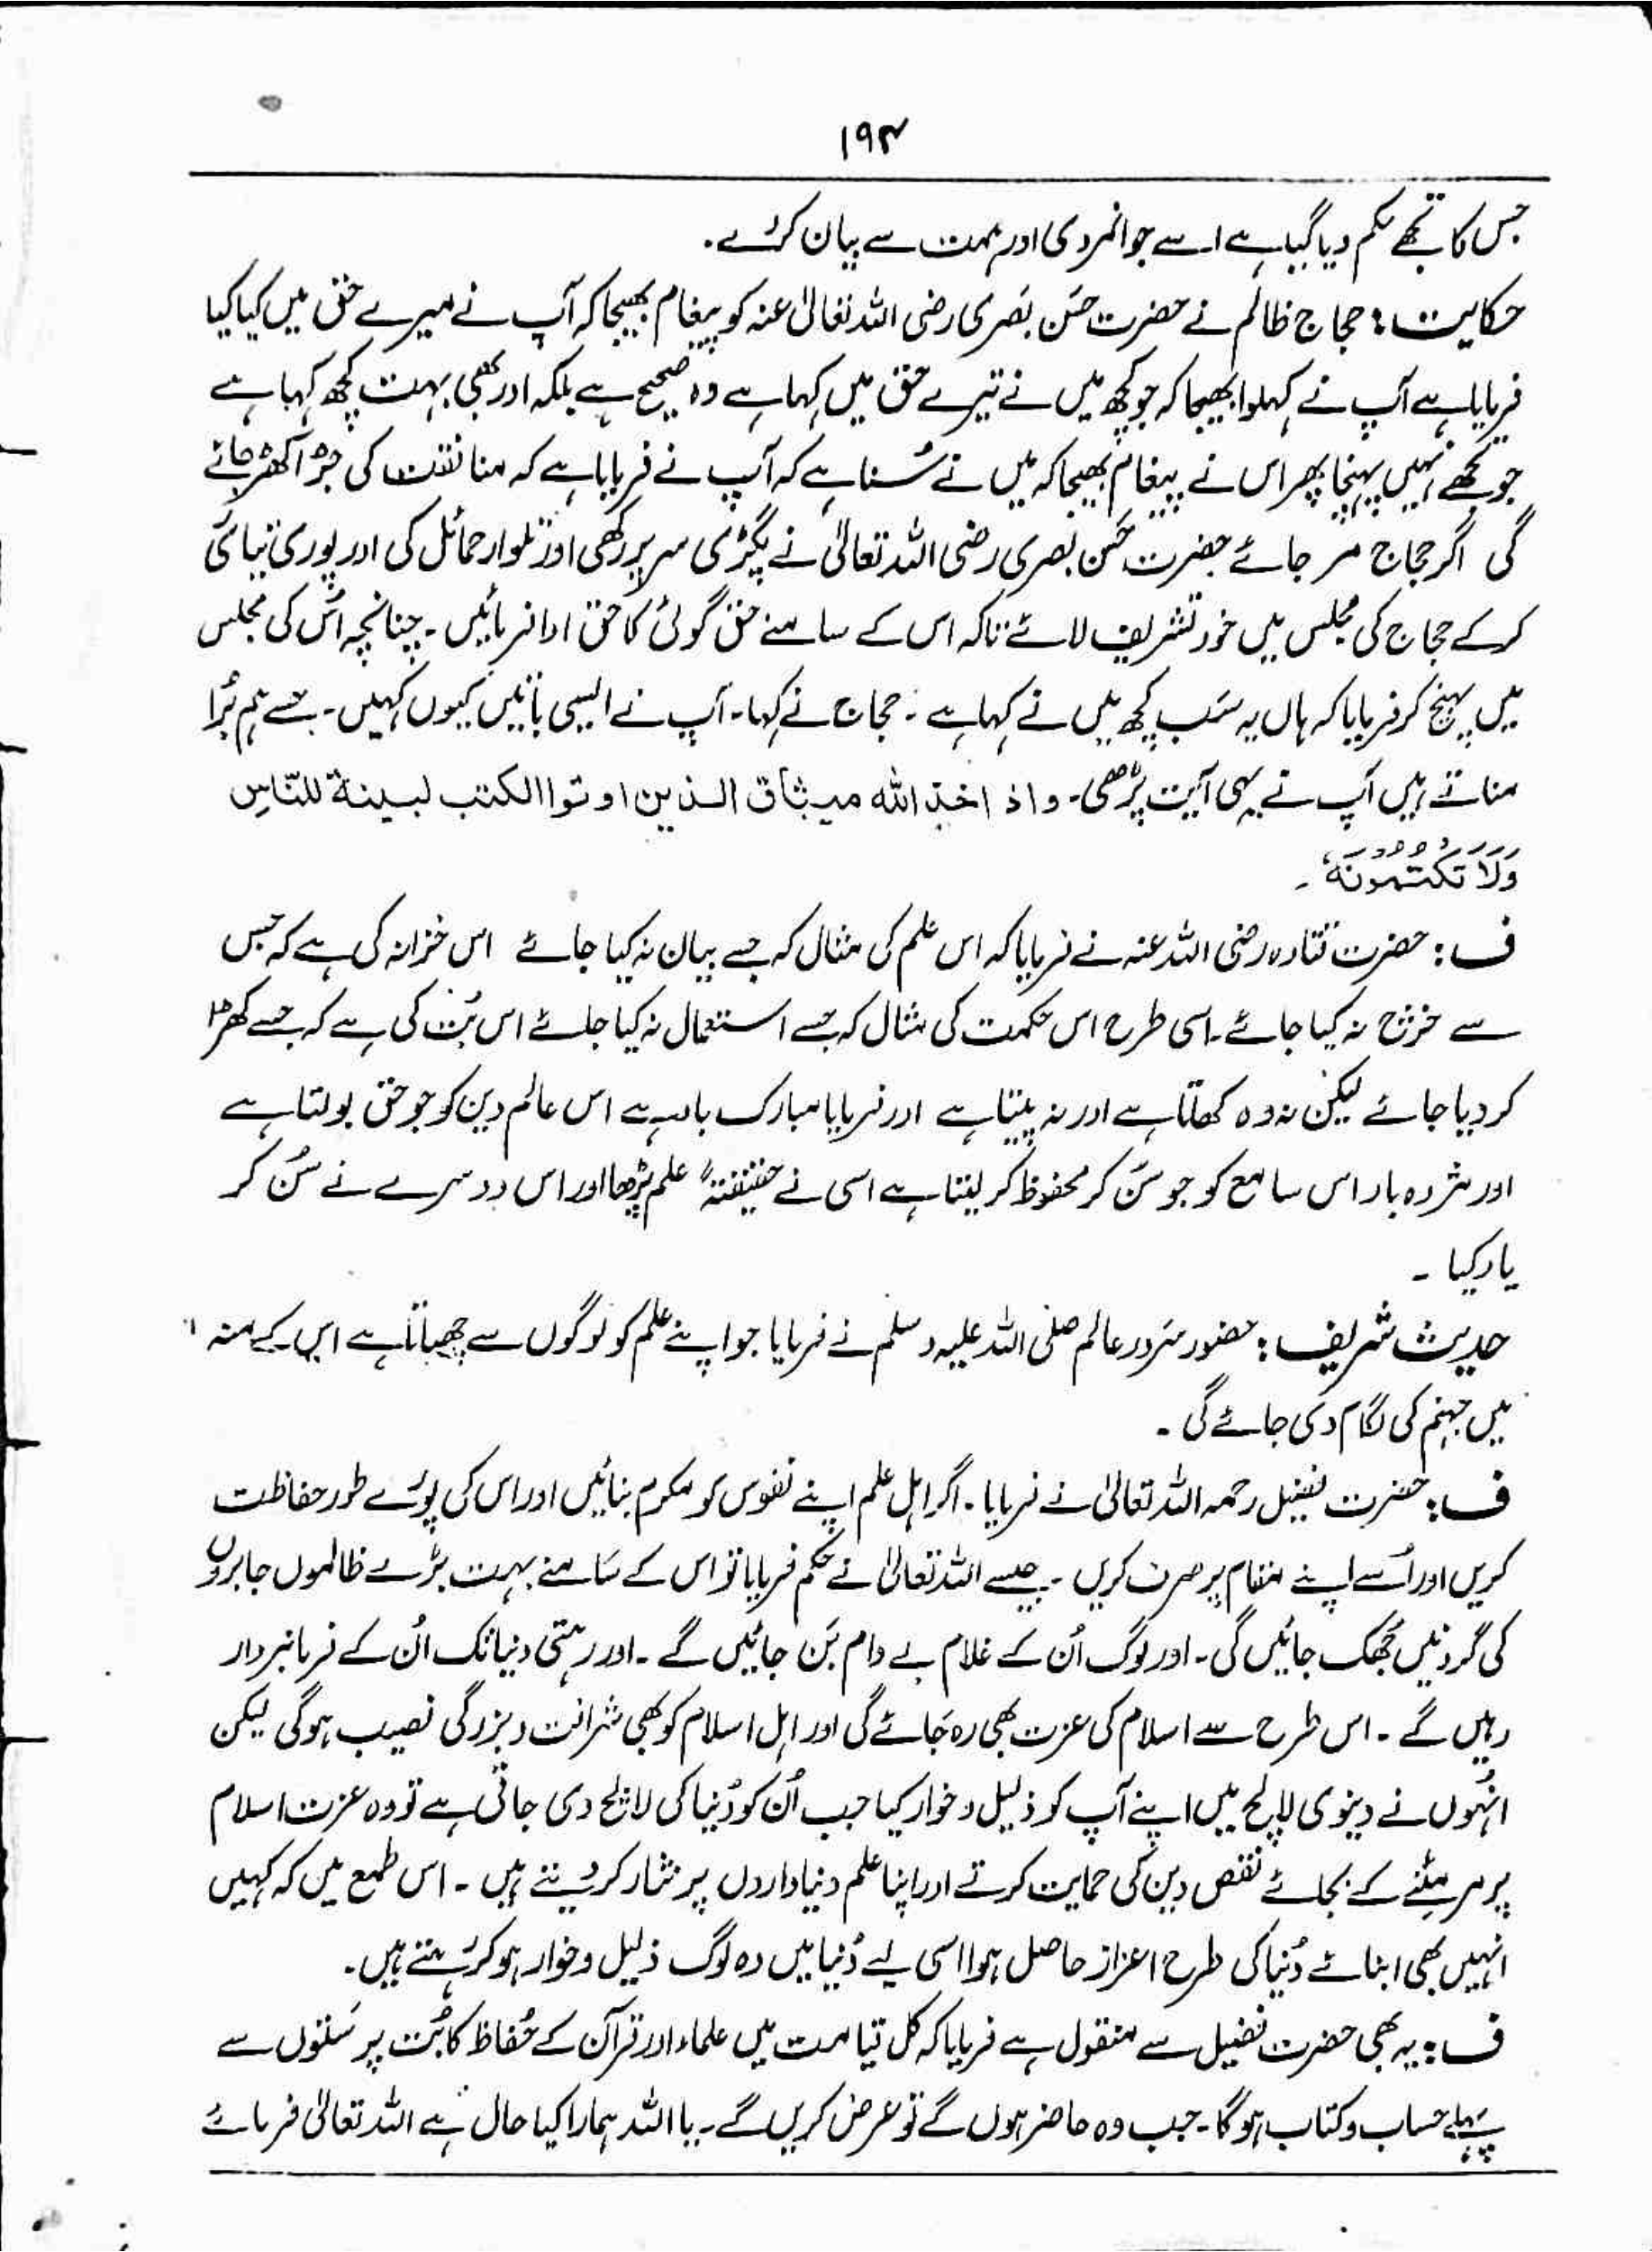 ۱۹۴
جس کا تجھے حکم دیا گیا ہے اسے جوانمردی اور ہمت سے بیان کرئے۔
حکایت : حجاج ظالم نے حضرت حسَن بَصری رضی اللہ تعالیٰ عنہ کو پیغام بھیجا کہ آپ نے میرے حق میں کیا کیا
فرمایا ہے آپ نے کہلوا بھیجا کہ جو کچھ میں نے تیرے حق میں کہا ہے وہ صحیح ہے بلکہ اور بھی بہت کچھ کہا ہے
جو تجھے نہیں پہنچا پھر اس نے پیغام بھیجا کہ میں نے سُنا ہے کہ آپ نے فرمایا ہے کہ منافقت کی جڑ اکھڑ جائے
گی اگر حجاج مر جائے حضرت حَسن بصری رضی اللہ تعالیٰ نے پگڑی سر پر رکھی اور تلوار حمائل کی اور پوری تیاری
کر کے حجاج کی مجلس میں خود تشریف لائے تاکہ اس کے سامنے حق گوئی کا حق ادا فرمائیں ۔ چنانچہ اُس کی مجلس
میں پہنچ کر فرمایا کہ ہاں یہ سَب کچھ میں نے کہا ہے ۔ حجاج نے کہا۔ آپ نے ایسی باتیں کیوں کہیں۔ جسے ہم بُرا
مناتے ہیں آپ نے یہی آیت پڑھی۔ واذ اخذ اللہ میثاق الذین اوتوا الکتب لبینۃ للنّاسِ
وَلَا تَكْتُمُوْنَهٗ ۔
ف : حضرت قتادہ رضی اللہ عنہ نے فرمایا کہ اس علم کی مثال کہ جسے بیان نہ کیا جائے اس خزانہ کی ہے کہ جس
سے خرچ نہ کیا جائے ۔ اسی طرح اس حکمت کی مثال کہ جسے استعمال نہ کیا جائے اس بُت کی ہے کہ جسے کھڑا
کر دیا جائے لیکن نہ وہ کھاتا ہے اور نہ پیتا ہے اور فرمایا مبارک باد ہے اس عالم دین کو جو حق بولتا ہے
اور مژدہ باد اس سامع کو جو سُن کر محفوظ کر لیتا ہے اسی نے حقیقتہً علم پڑھا اور اس دوسرے نے سُن کر
یاد کیا ۔
حدیث شریف : حضور سَرور عالم صلی اللہ علیہ وسلم نے فرمایا جو اپنے علم کو لوگوں سے چھپاتا ہے اس کے منہ
میں جہنم کی لگام دی جائے گی ۔
ف : حضرت فضیل رحمہ اللہ تعالیٰ نے فرمایا ۔ اگر اہل علم اپنے نفوس کو مکرم بنائیں اور اس کی پورے طور حفاظت
کریں اور اُسے اپنے مقام پر صرف کریں ۔ جیسے اللہ تعالیٰ نے حکم فرمایا تو اس کے سَامنے بہت بڑے ظالموں جابروں
کی گردنیں جھک جائیں گی ۔ اور لوگ اُن کے غلام بے دام بَن جائیں گے ۔ اور رہتی دنیا تک اُن کے فرمانبردار
رہیں گے ۔ اس طرح سے اسلام کی عزت بھی رہ جَائے گی اور اہل اسلام کو بھی شرافت و بزرگی نصیب ہوگی لیکن
انہُوں نے دینوی لالچ میں اپنے آپ کو ذلیل و خوار کیا جب اُن کو دُنیا کی لالچ دی جاتی ہے تو وہ عزت اسلام
پر مر مٹنے کے بجائے نقص دین کی حمایت کرتے اور اپنا علم دنیا داروں پر نثار کر دیتے ہیں ۔ اس طمع میں کہ کہیں
انہیں بھی ابنائے دُنیا کی طرح اعزاز حاصل ہوا اسی لیے دُنیا میں وہ لوگ ذلیل و خوار ہو کر رہتے ہیں۔
ف : یہ بھی حضرت فضیل سے منقول ہے فرمایا کہ کل قیامت میں علماء اور قرآن کے حُفاظ کا بُت پرستوں سے
پہلے حساب و کتاب ہوگا ۔ جب وہ حاضر ہوں گے تو عرض کریں گے ۔ یا اللہ ہمارا کیا حال ہے اللہ تعالیٰ فرمائے